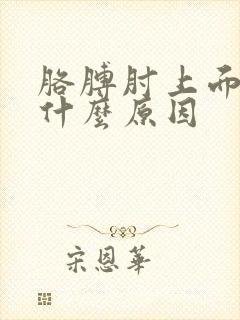 胳膊肘上而
什麼原因
宋恩華